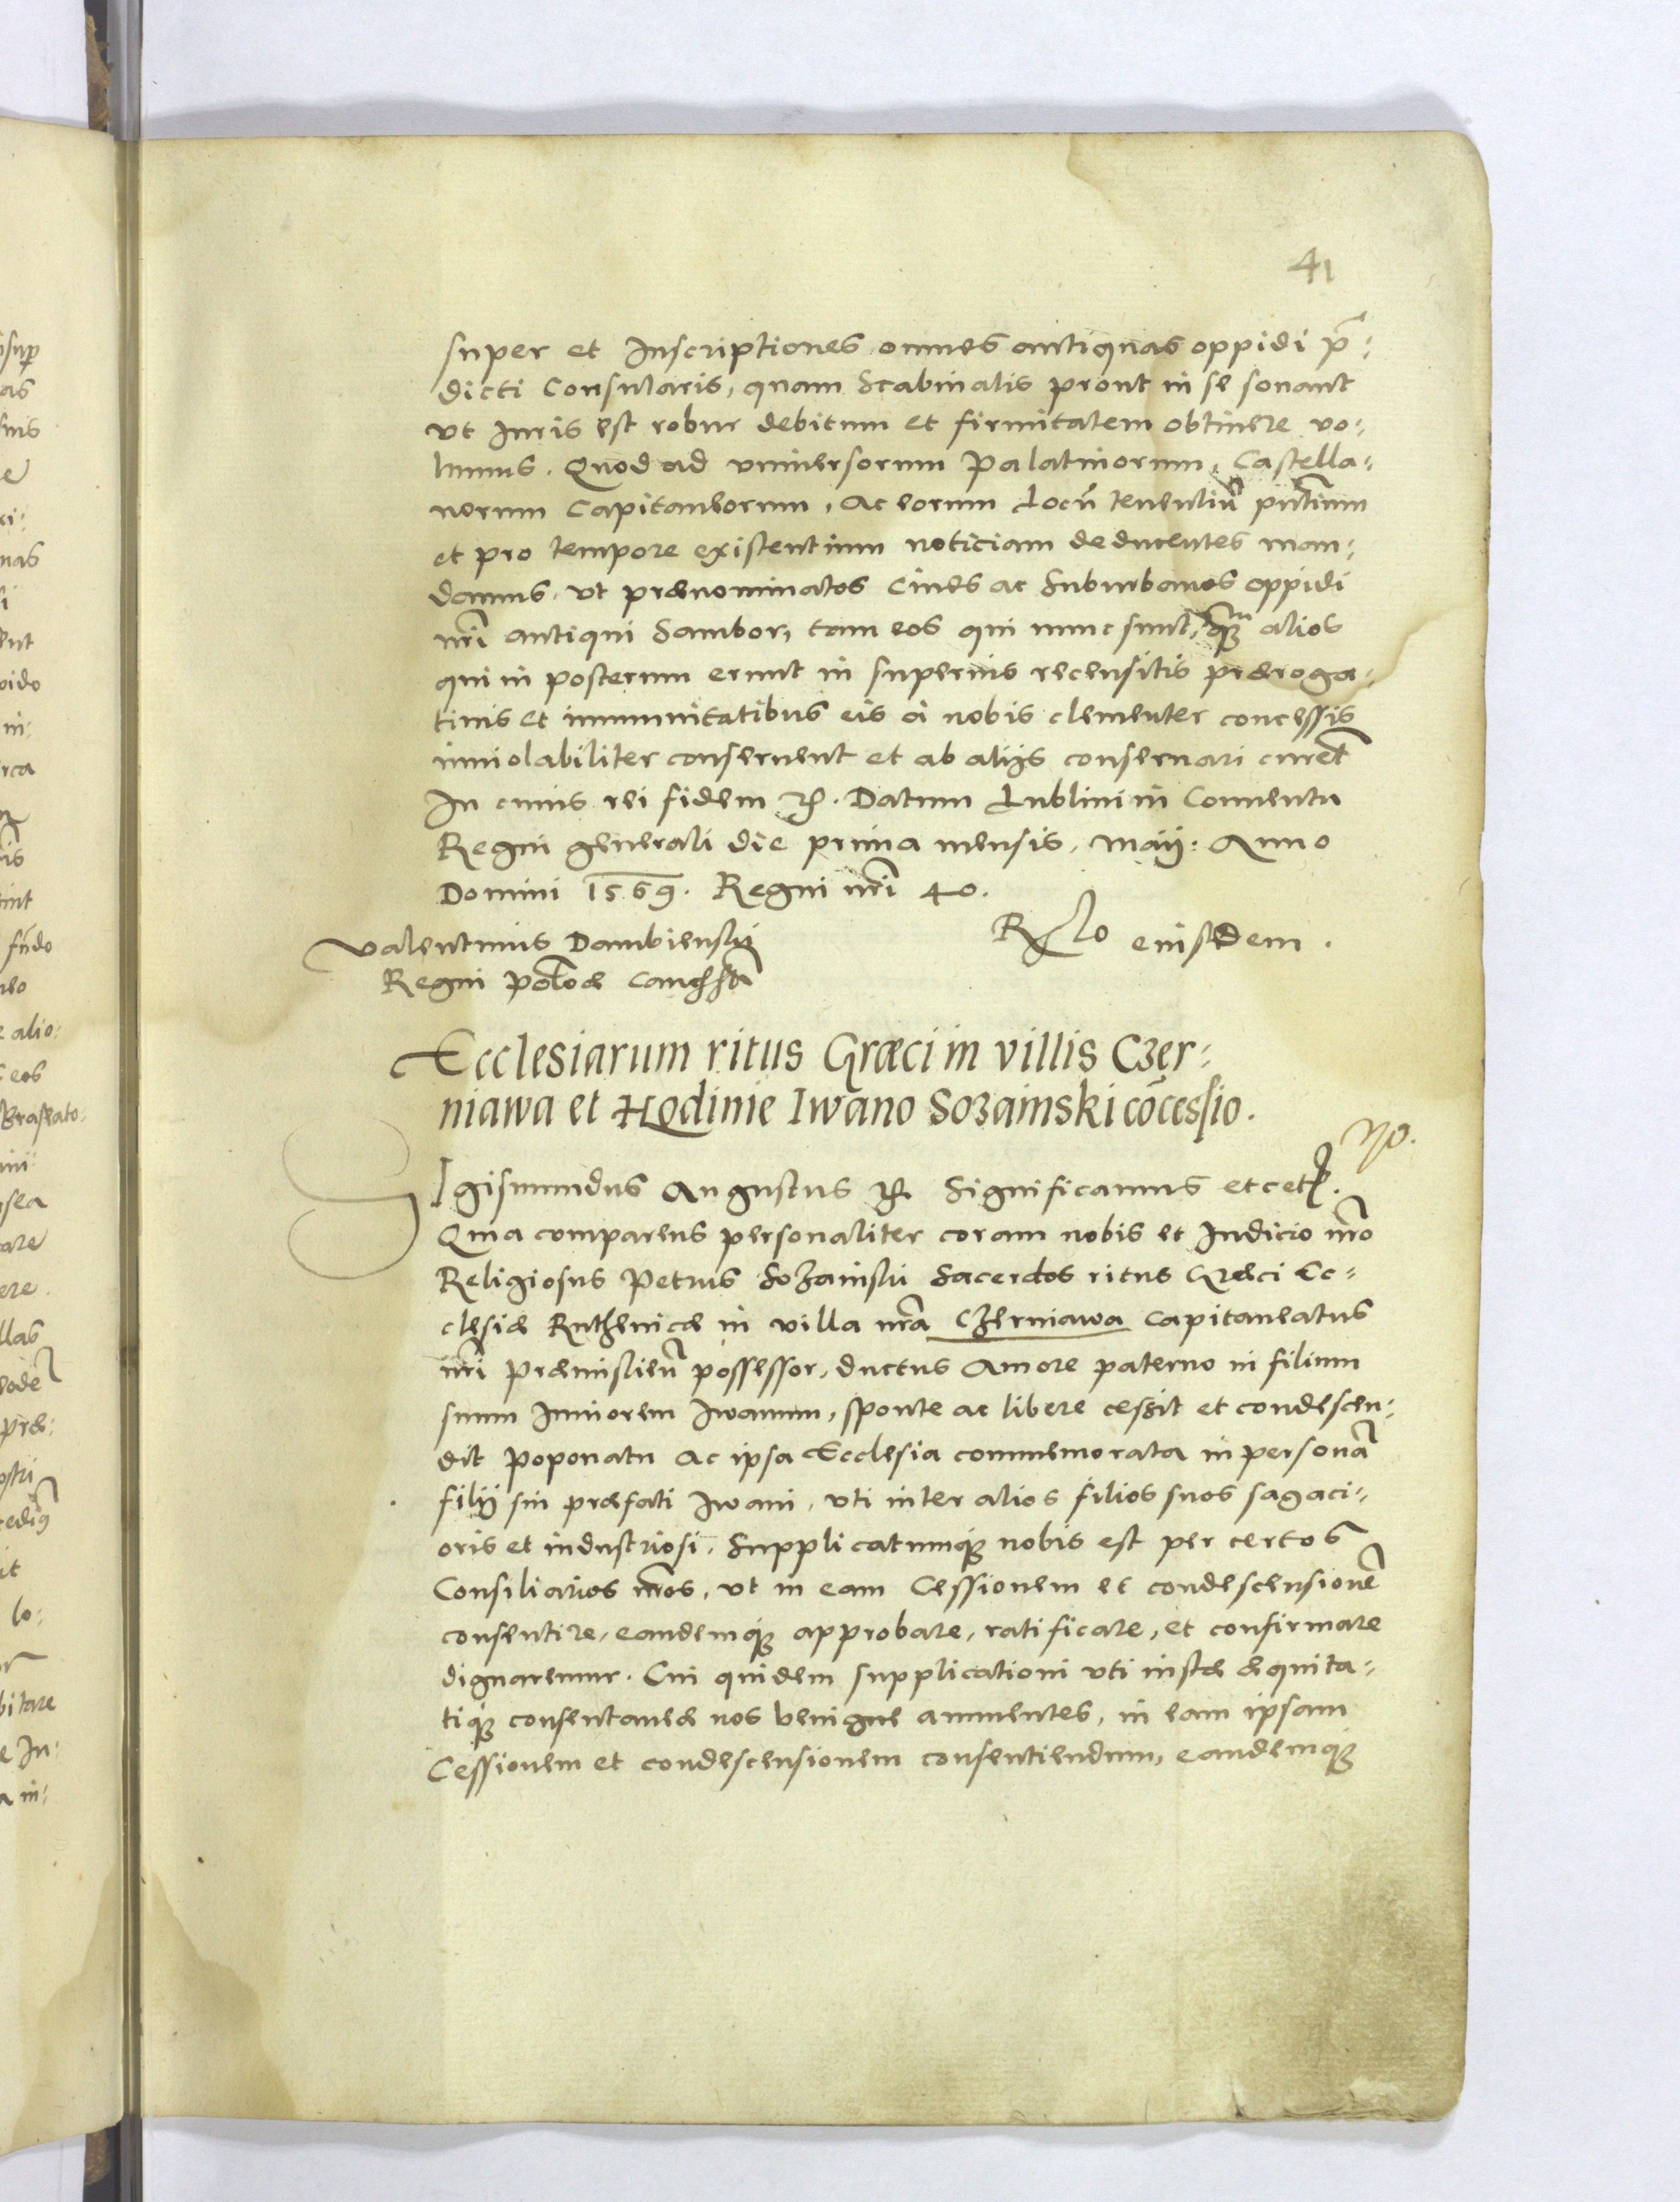 41
super et Inscriptiones omnes antiquas oppidi p̃:
dicti Consularis, quam Scabinalis prout in se sonant
ut Iuris est robur debitum et firmitatem obtinere vo:
lumus. Quod ad universorum Palatinorum, Castella:
norum Capitaneorum, Ac eorum Locũ tenentiũ pñtium
et pro tempore existentium noticiam deducentes man:
damus, ut prænominatos Cives ac Suburbanos oppidi
nr̃i antiqui Sambor, tam eos qui nunc sunt, quam alios
qui in posterum erunt in superius recensitis præroga:
tivis et immunitatibus eis a nobis clementer concessis
inviolabiliter conservent et ab alijs conservari curẽt
In cuius rei fidem etc. Datum Lublini in Conventu
Regni generali die prima mensis, Maij: Anno
Domini 1569. Regni nr̃i 40.
Valentinus Dambienski
Regni Poloæ Canc
Rlo eiusdem.
Ecclesiarum ritus Græci in villis Czer:
niawa et Hodinie Iwano Sozainski cõcessio.
No.
Igismundus Augustus etc. Significamus etcet.
Quia comparens personaliter coram nobis et Iudicio nr̃o
Religiosus Petrus Sozainski Sacerdos ritus Græci Ec:
clesiæ Ruthenicæ in villa nr̃a Czerniawa Capitaneatus
nr̃i Præmislieñ possessor, ductus Amore paterno in filium
suum Iuniorem Iwanum, sponte ac libere cessit et condescen:
dit Poponatu Ac ipsa Ecclesia commemorata in personã
filij sui præfati Iwani, uti inter alios filios suos sagaci:
oris et industriosi. Supplicatumque nobis est per certos
Consiliarios nr̃os, ut in eam Cessionem et condescensionẽ
consentire, eandemque approbare, ratificare, et confirmare
dignaremur. Cui quidem supplicationi uti iustæ æquita:
tique consentaneæ nos benigne annuentes, in eam ipsam
Cessionem et condescensionem consentiendum, eandemque